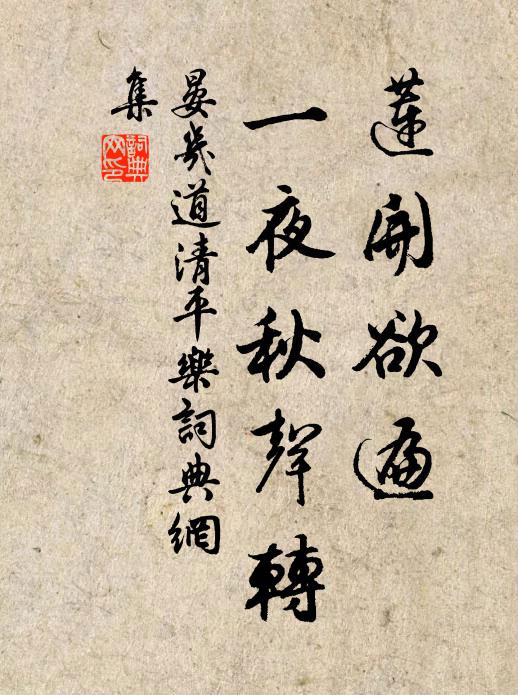 蓮開欲遍
一夜秋聲轉
晏幾道清平樂詞典網
集
詞典
网印